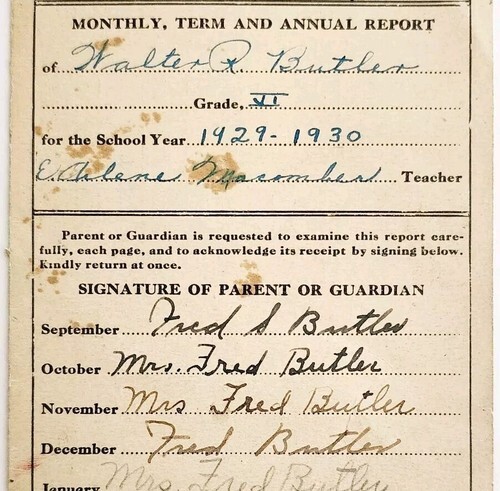 MONTHLY, TERM AND ANNUAL REPORT
of Walter R. Butler
Grade, VI
for the School Year 1929-1930
E. Arlene Macomber Teacher
Parent or Guardian is requested to examine this report care-
fully, each page, and to acknowledge its receipt by signing below.
Kindly return at once.
SIGNATURE OF PARENT OR GUARDIAN
September Fred S Butler
October Mrs. Fred Butler
November Mrs Fred Butler
December Fred Butler
January Mrs. Fred Butler